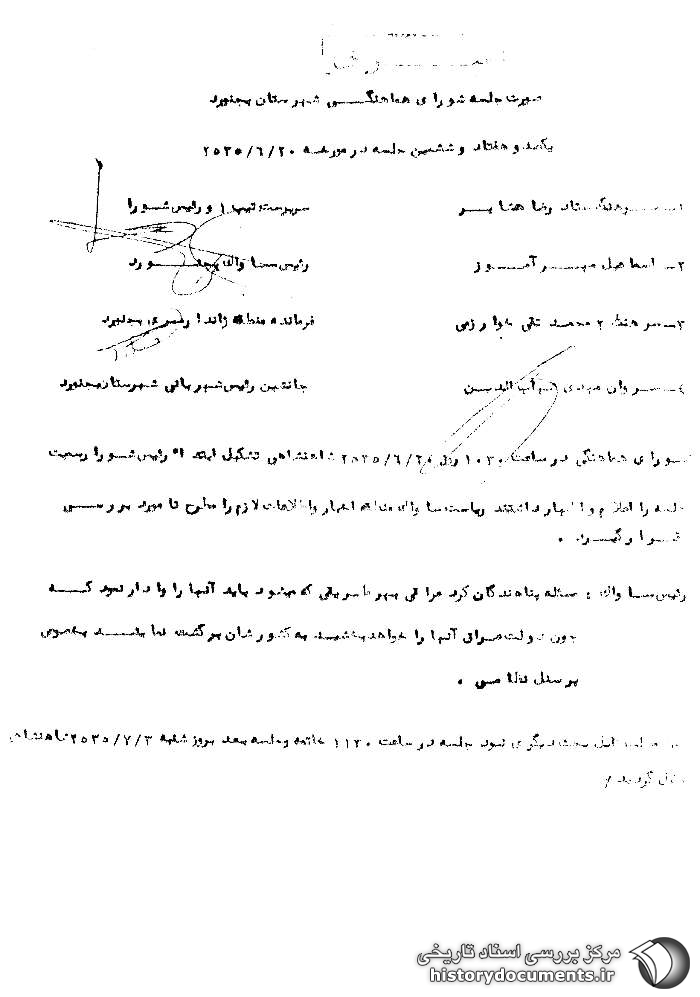 صورت جلسه شورای هماهنگی شهرستان بجنورد
یکصد و هفتاد و ششمین جلسه در مورخه ۲۵۳۵/۶/۲۰
۱- سرهنگ ستاد رضا سرپرست تیپ ۱ و رئیس شورا
۲- اسماعیل مهرآموز رئیس ساواک بجنورد
۳- سرهنگ ۲ محمد تقی خوارزمی فرمانده منطقه ژاندارمری بجنورد
۴- سروان مهدی جانشین رئیس شهربانی شهرستان بجنورد
شورای هماهنگی در ساعت ۱۰۳۰ روز ۲۵۳۵/۶/۲۰ شاهنشاهی تشکیل ابتدا رئیس شورا رسمیت
جلسه را اعلام و اظهار داشتند ریاست ساواک منطقه اخبار و اطلاعات لازم را مطرح تا مورد بررسی
قرار گیرد .
رئیس ساواک : مسئله پناهندگان کرد عراقی بهر طریقی که میشود باید آنها را وادار نمود که
چون دولت عراق آنها را خواهد بخشید به کشورشان برگشت نمایند بخصوص
پرسنل نظامی .
بحث دیگری نبود جلسه در ساعت ۱۱۳۰ خاتمه و جلسه بعد بروز شنبه ۲۵۳۵/۷/۳ شاهنشاهی
گردید /
مرکز بررسی اسناد تاریخی
historydocuments.ir